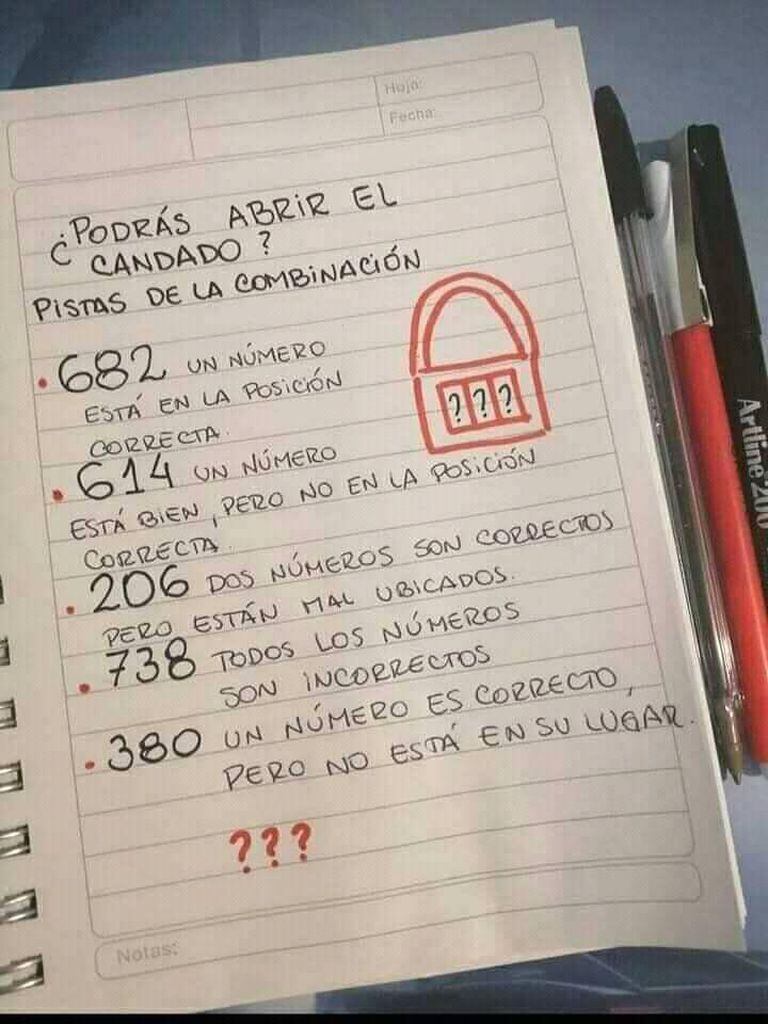 Hoja:
Fecha:
¿PODRÁS ABRIR EL
CANDADO?
PISTAS DE LA COMBINACIÓN
• 682 UN NÚMERO
ESTÁ EN LA POSICIÓN
CORRECTA.
• 614 UN NÚMERO
ESTÁ BIEN, PERO NO EN LA POSICIÓN
CORRECTA.
• 206 DOS NÚMEROS SON CORRECTOS
PERO ESTÁN MAL UBICADOS.
• 738 TODOS LOS NÚMEROS
SON INCORRECTOS
• 380 UN NÚMERO ES CORRECTO,
PERO NO ESTÁ EN SU LUGAR.
???
???
Notas:
Artline 200